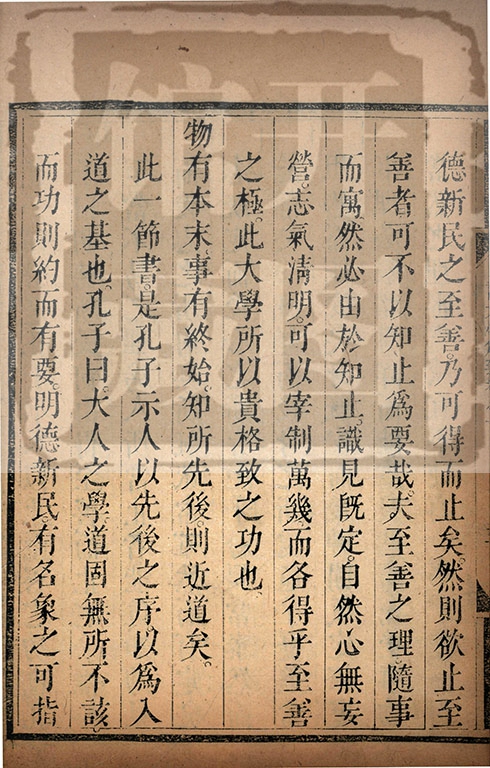 德新民之至善。乃可得而止矣。然則欲止至
善者可不以知止爲要哉。夫至善之理。隨事
而寓。然必由於知止。識見既定。自然心無妄
營。志氣清明。可以宰制萬幾而各得乎至善
之極。此大學所以貴格致之功也
物有本末。事有終始。知所先後。則近道矣。
此一節書。是孔子示人以先後之序。以爲入
道之基也。孔子曰。大人之學道固無所不該
而功則約而有要。明德新民有名象之可指